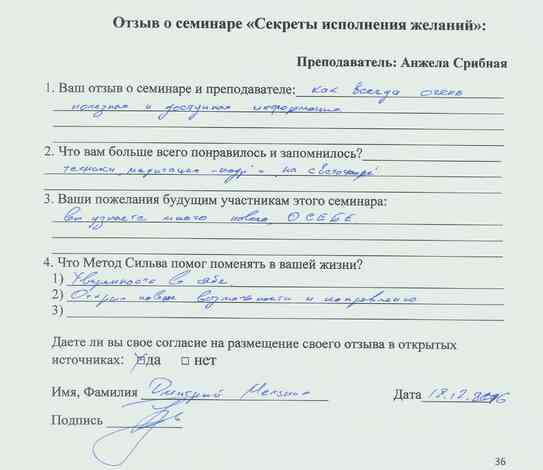 Отзыв о семинаре «Секреты исполнения желаний»:
Преподаватель: Анжела Срибная
1. Ваш отзыв о семинаре и преподавателе: как всегда очень
полезная и доступная информация
2. Что вам больше всего понравилось и запомнилось?
техники, медитация на
3. Ваши пожелания будущим участникам этого семинара:
вы узнаете много нового О СЕБЕ
4. Что Метод Сильва помог поменять в вашей жизни?
1) Уверенность в себе
2) Открыл новые возможности и направления
3)
Даете ли вы свое согласие на размещение своего отзыва в открытых
источниках: да нет
Имя, Фамилия Дмитрий
Дата 18.12.
Подпись
36